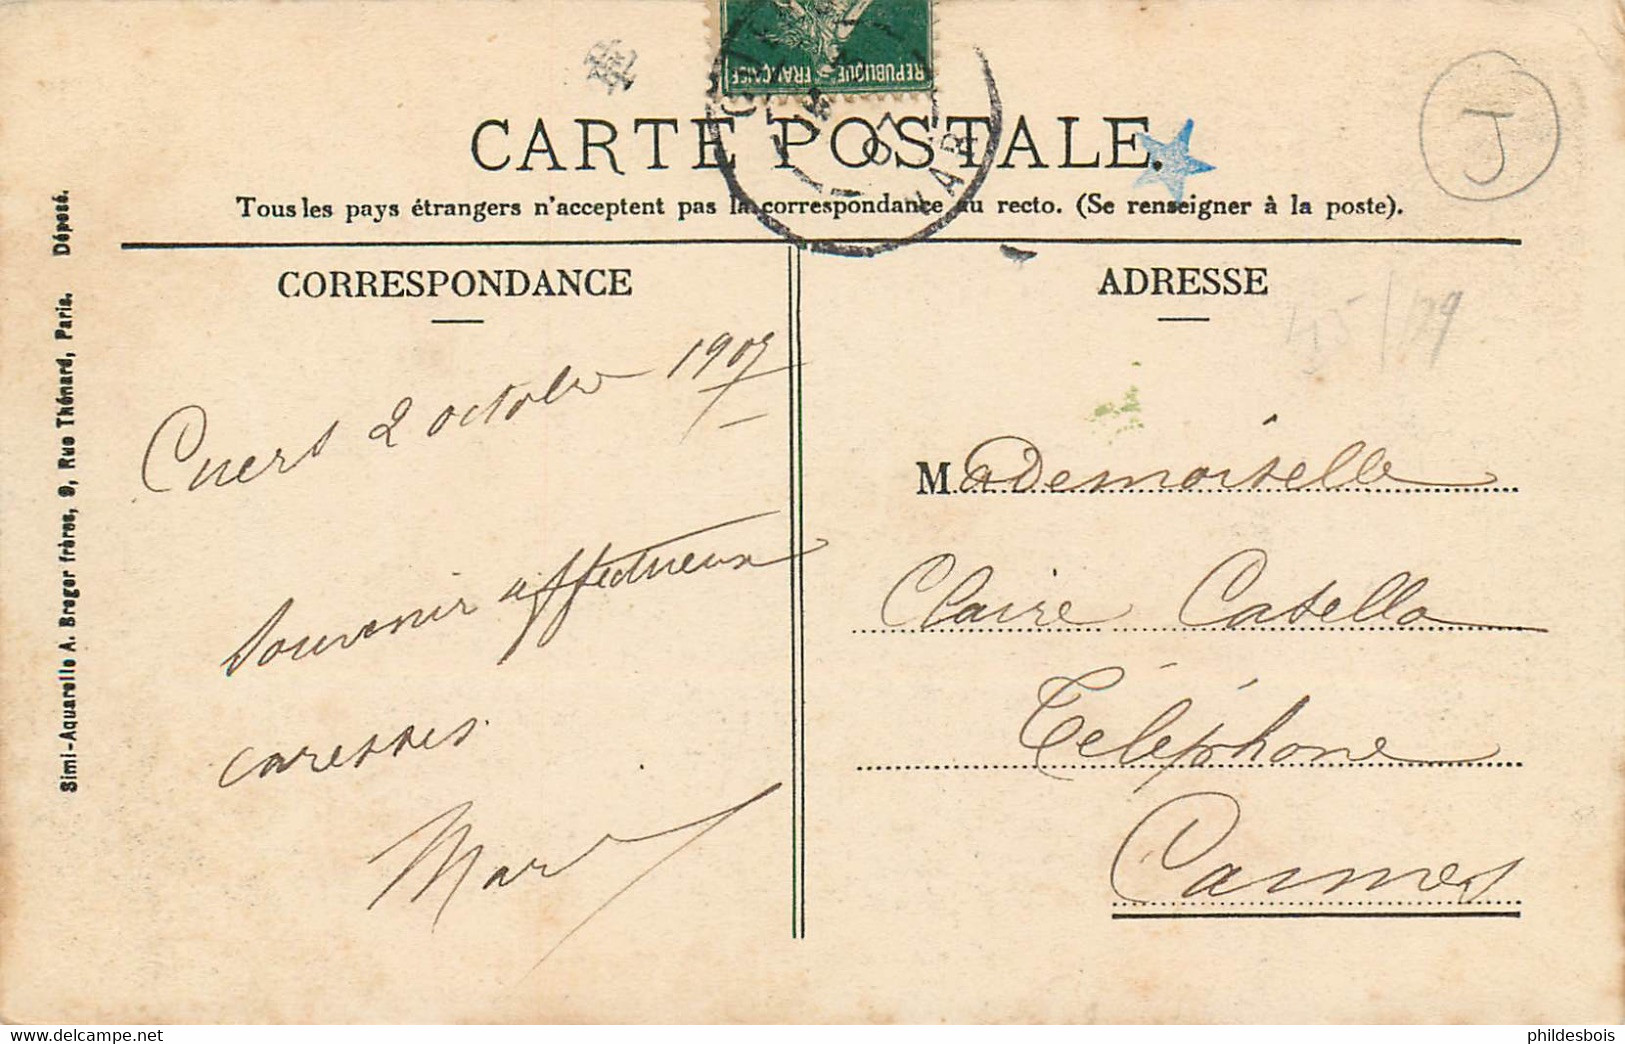 RÉPUBLIQUE FRANÇAISE
VAR
J
CARTE POSTALE.
Tous les pays étrangers n'acceptent pas la correspondance au recto. (Se renseigner à la poste).
Simi-Aquarelle A. Breger frères, 9, Rue Thénard, Paris. Déposé.
CORRESPONDANCE
Cuers 2 octobre 1907
Souvenir affectueux
caresses
Marie
ADRESSE
Mademoiselle
Claire Casella
Téléphone
Cannes
www.delcampe.net
phildesbois